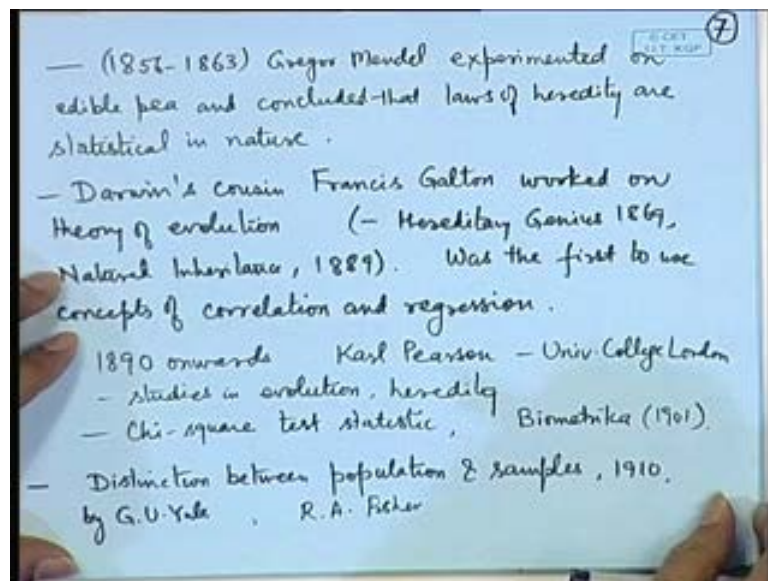 © CET
I.I.T. KGP
7
— (1856-1863) Gregor Mendel experimented on
edible pea and concluded that laws of heredity are
statistical in nature.
- Darwin's cousin Francis Galton worked on
theory of evolution (- Hereditary Genius 1869,
Natural Inheritance, 1889). Was the first to use
concepts of correlation and regression.
1890 onwards Karl Pearson - Univ. College London
- studies in evolution, heredity
- Chi-square test statistic, Biometrika (1901).
- Distinction between population & samples, 1910,
by G.U. Yule, R.A. Fisher